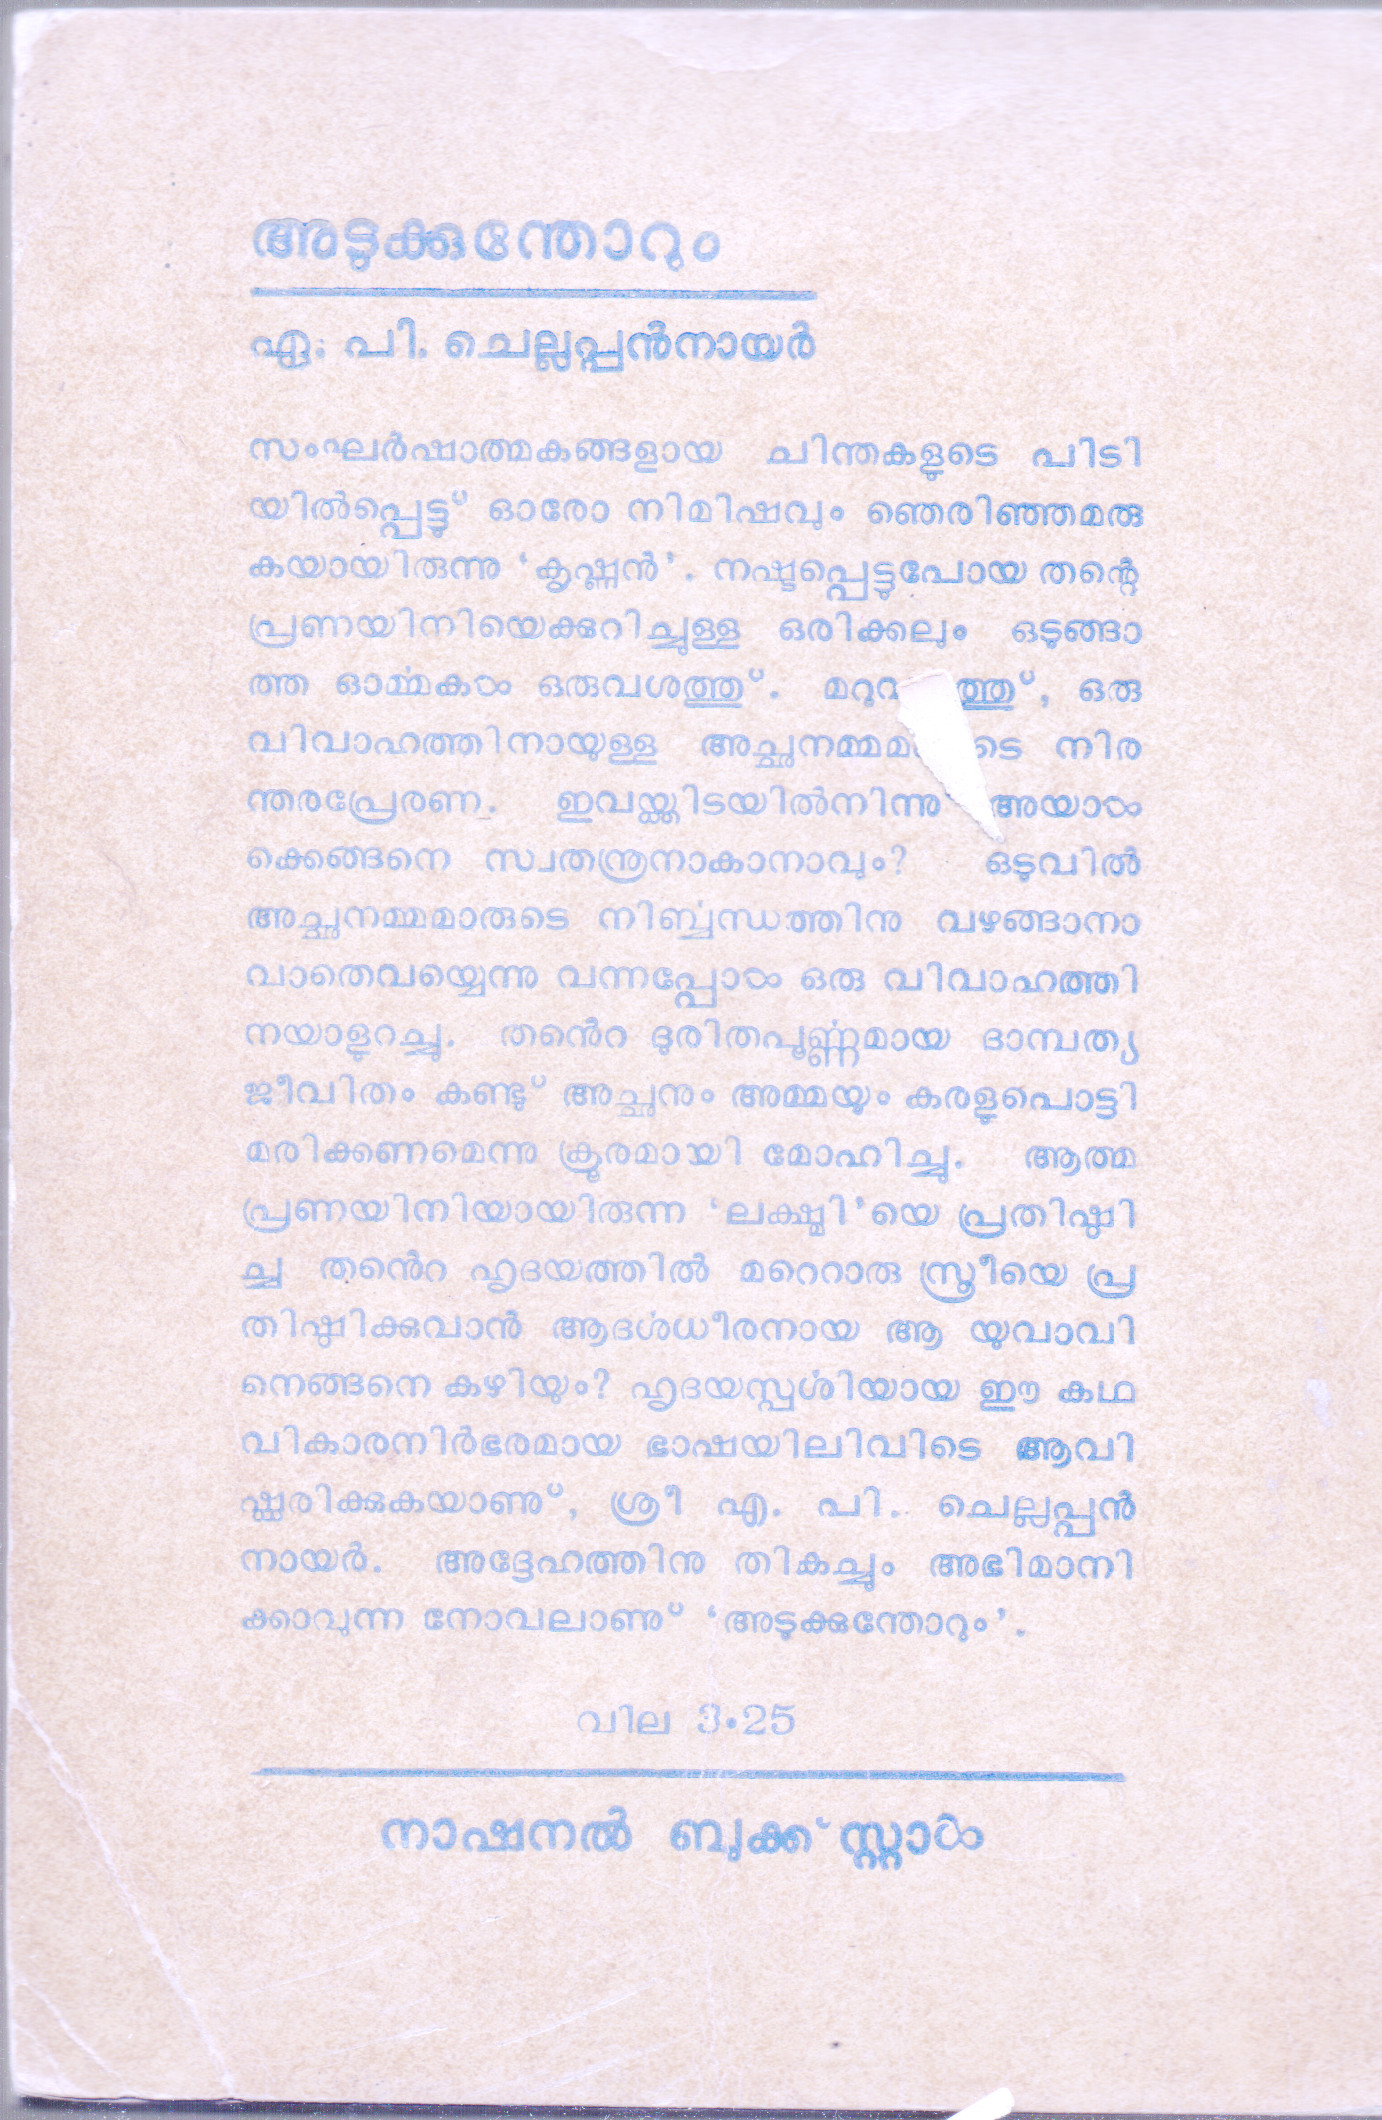 അടുക്കുന്തോറും
ഏ. പി. ചെല്ലപ്പൻനായർ
സംഘർഷാത്മകങ്ങളായ ചിന്തകളുടെ പിടി
യിൽപ്പെട്ടു് ഓരോ നിമിഷവും ഞെരിഞ്ഞമരു
കയായിരുന്നു ‘കൃഷ്ണൻ’. നഷ്ടപ്പെട്ടുപോയ തന്റെ
പ്രണയിനിയെക്കുറിച്ചുള്ള ഒരിക്കലും ഒടുങ്ങാ
ത്ത ഓൎമ്മകൾ ഒരുവശത്തു്. ഒരു
വിവാഹത്തിനായുള്ള നിര
ന്തരപ്രേരണ. ഇവയ്ക്കിടയിൽനിന്നു് അയാൾ
ക്കെങ്ങനെ സ്വതന്ത്രനാകാനാവും? ഒടുവിൽ
അച്ഛനമ്മമാരുടെ നിൎബ്ബന്ധത്തിനു വഴങ്ങാനാ
വാതെവയ്യെന്നു വന്നപ്പോൾ ഒരു വിവാഹത്തി
നയാളുറച്ചു. തൻെറ ദുരിതപൂൎണ്ണമായ ദാമ്പത്യ
ജീവിതം കണ്ടു് അച്ഛനും അമ്മയും കരളുപൊട്ടി
മരിക്കണമെന്നു ക്രൂരമായി മോഹിച്ചു. ആത്മ
പ്രണയിനിയായിരുന്ന ‘ലക്ഷ്മി’യെ പ്രതിഷ്ഠി
ച്ച തൻെറ ഹൃദയത്തിൽ മറെറാരു സ്ത്രീയെ പ്ര
തിഷ്ഠിക്കുവാൻ ആദൎശധീരനായ ആ യുവാവി
നെങ്ങനെ കഴിയും? ഹൃദയസ്പൎശിയായ ഈ കഥ
വികാരനിർഭരമായ ഭാഷയിലിവിടെ ആവി
ഷ്ക്കരിക്കുകയാണു്, ശ്രീ എ. പി. ചെല്ലപ്പൻ
നായർ. അദ്ദേഹത്തിനു തികച്ചും അഭിമാനി
ക്കാവുന്ന നോവലാണു് ‘അടുക്കുന്തോറും’.
വില 3·25
നാഷനൽ ബുക്ക് സ്റ്റാൾ